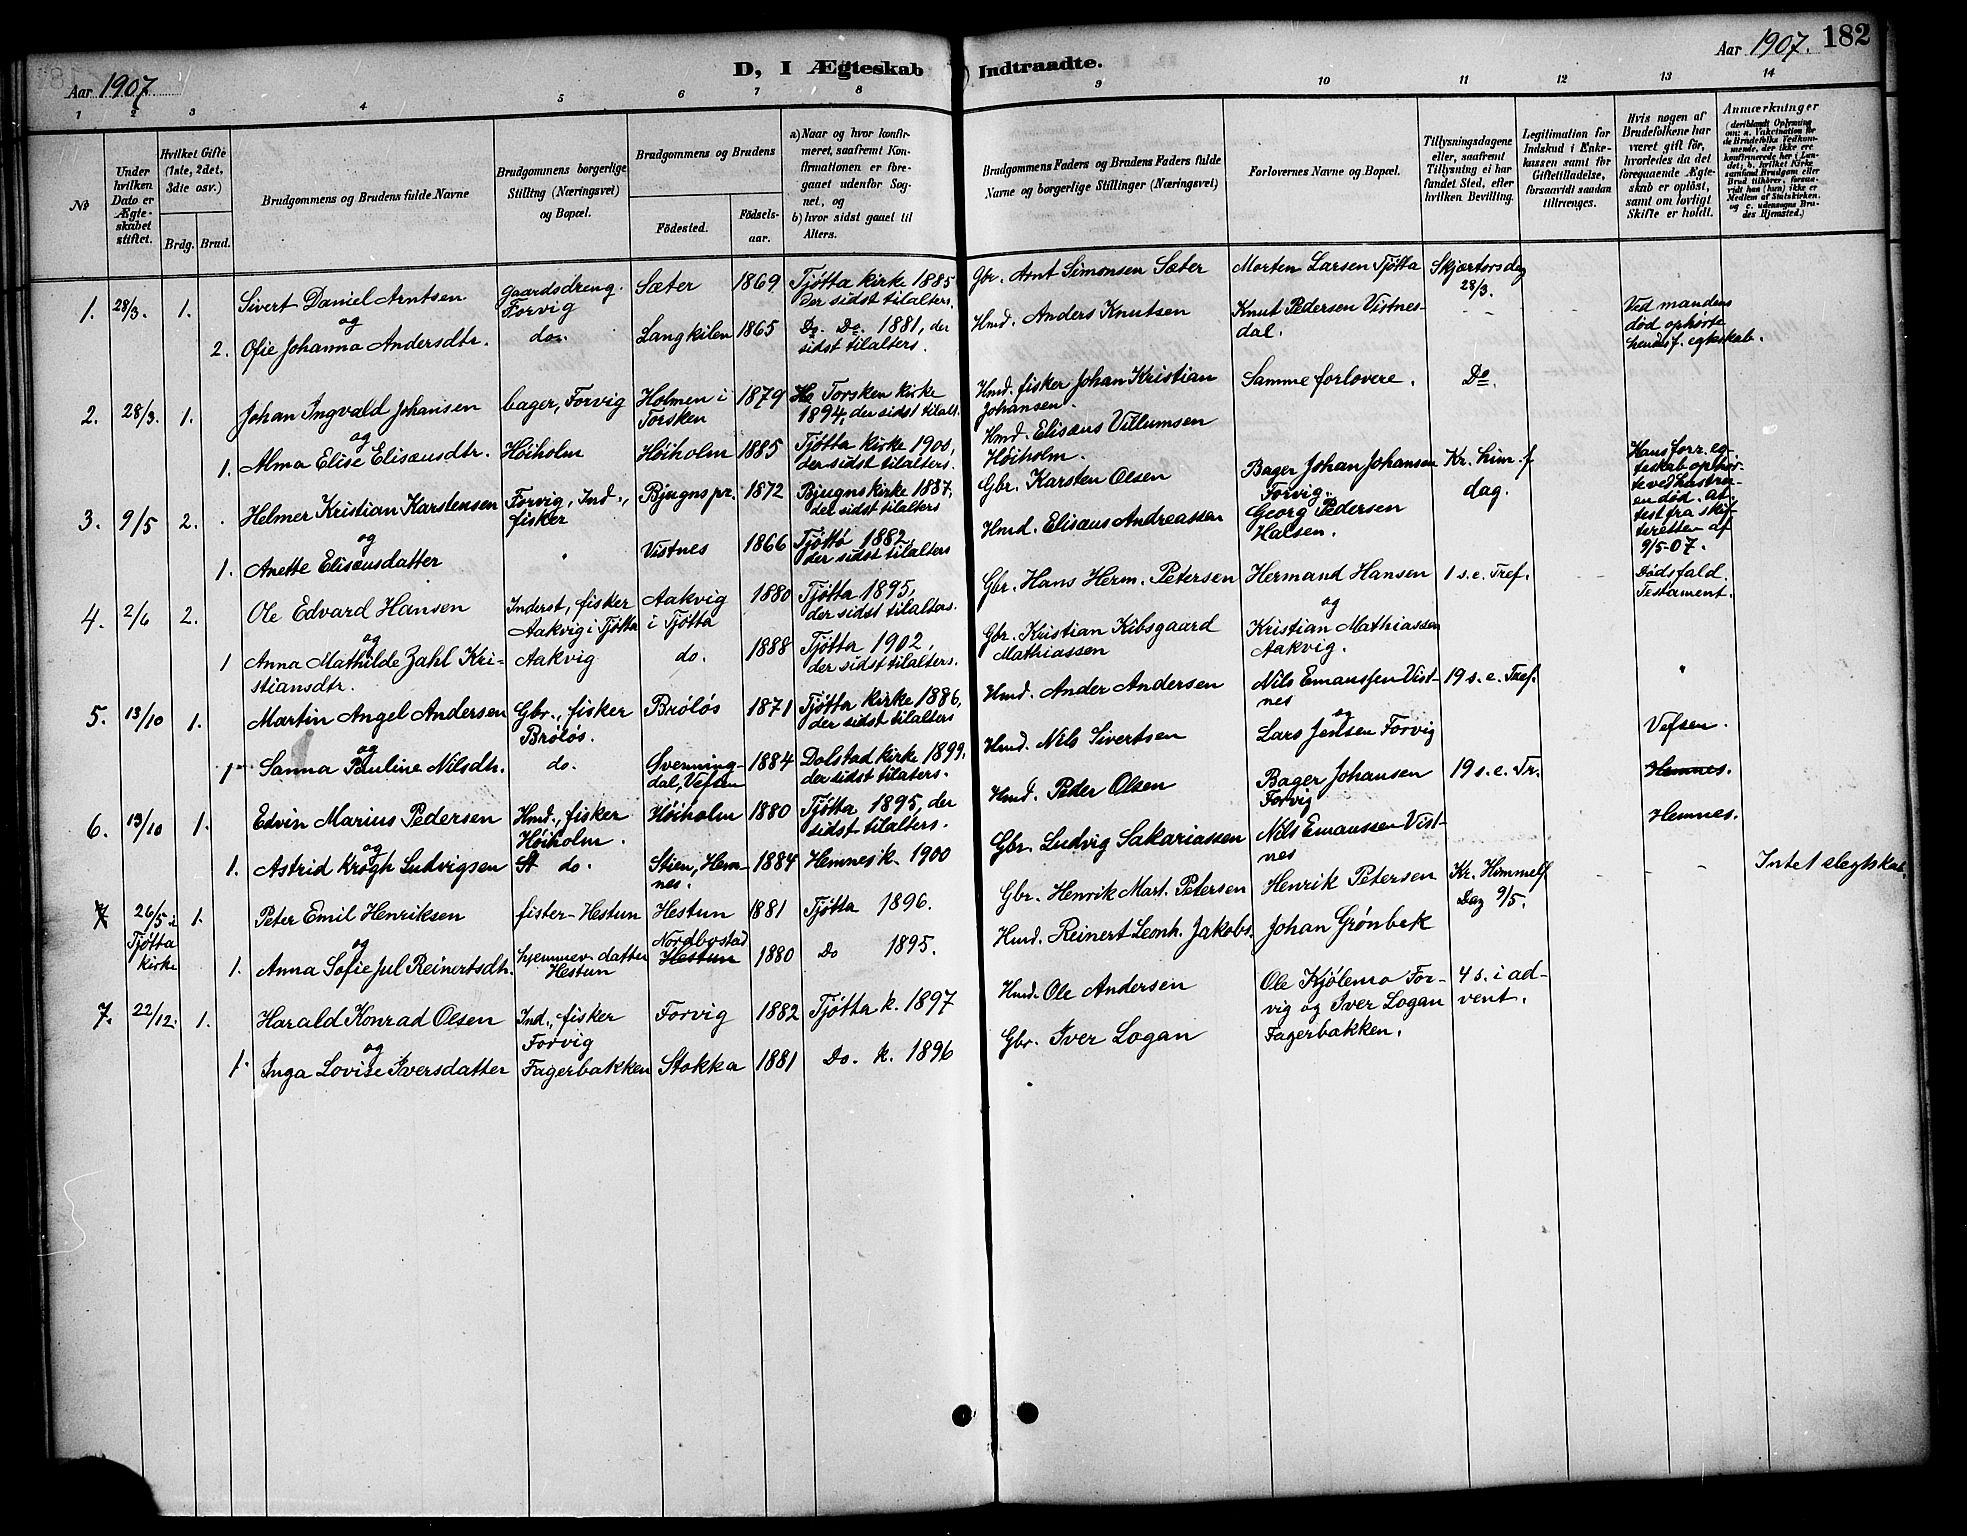 Aar 1907
D, I Ægteskab Indtraadte.
Aar 1907. 182
1 2 3 4 5 6 7 8 9 10 11 12 13 14
No
Under hvilken Dato er Ægteskabet stiftet.
Hvilket Gifte (1ste, 2det, 3die osv.)
Brdg. Brud.
Brudgommens og Brudens fulde Navne
Brudgommens borgerlige Stilling (Næringsvei) og Bopæl.
Brudgommens og Brudens
Födested.
Födselsaar.
a) Naar og hvor konfirmeret, saafremt Konfirmationen er foregaaet udenfor Sognet, og
b) hvor sidst gaaet til Alters.
Brudgommens Faders og Brudens Faders fulde Navne og borgerlige Stillinger (Næringsvei)
Forlovernes Navne og Bopæl.
Tillysningsdagene eller, saafremt Tillysning ei har fundet Sted, efter hvilken Bevilling.
Legitimation for Indskud i Enkekassen samt for Giftetilladelse, forsaavidt saadan tiltrænges.
Hvis nogen af Brudefolkene har været gift för, hvorledes da det foregaaende Ægteskab er oplöst, samt om lovligt Skifte er holdt.
Anmærkninger (deriblandt Oplysning om: a. Vakcination for de Brudefolks Vedkommende, der ikke ere konfirmerede her i Landet; b. hvilket Kirkesamfund Brudgom eller Brud tilhörer, forsaavidt han (hun) ikke er Medlem af Statskirken, og c. udensogns Brudes Hjemsted.)
1. 28/3. 1. Sivert Daniel Arntsen Gaardsdreng. Forvig Sæter 1869 Tjøtta kirke 1885 der sidst tilalters. Gbr. Arnt Simonsen Sæter Morten Larsen Tjøtta Skjærtorsdag 28/3.
og
2. Ofie Johanna Andersdtr. do. Langkilen 1865 Do. Do. 1881, der sidst tilalters. Hmd. Anders Knutsen Knut Pedersen Vistnesdal. Ved mandens død ophørte hendes f. egteskab.
2. 28/3. 1. Johan Ingvald Johansen bager, Forvig Holmen i Torsken 1879 Torsken kirke 1894, der sidst tilalt. Hmd. fisker Johan Kristian Johansen. Samme forlovere. Do.
og
1. Alma Elise Elisæusdtr. Høiholm Høiholm 1885 Tjøtta kirke 1900, der sidst tilalters. Hmd. Elisæus Villumsen Høiholm.
3. 9/5 2. Helmer Kristian Karstensen Forvig, Ind., fisker Bjugns pr. 1872 Bjugns kirke 1887, der sidst tilalters Gbr. Karsten Olsen Bager Johan Johansen Forvig. Kr. him.f dag. Hans forr. egteskab ophørte ved hustruen død. Attest fra skifteretten af 9/5-07.
og
1. Anette Elisæusdatter " Vistnes 1866 Tjøtta 1882, der sidst tilalters Hmd. Elisæus Andreassen Georg Pedersen Halsen.
4. 2/6 2. Ole Edvard Hansen Inderst, fisker Aakvig i Tjøtta Aakvig i Tjøtta 1880 Tjøtta 1895, der sidst tilalters. Gbr. Hans Herm. Petersen Hermand Hansen 1 s. e. Tref. Dødsfald. Testament.
og og
1 Anna Mathilde Zahl Kristiansdtr. Aakvig do. 1888 Tjøtta 1902, der sidst tilalters. Gbr. Kristian Kibsgaard Mathiassen Kristian Mathiassen Aakvig.
5. 13/10 1. Martin Angel Andersen Gbr., fisker Brøløs. Brøløs 1871 Tjøtta kirke 1886, der sidst tilalters Hmd. Ander Andersen Nils Emaussen Vistnes 19 s. e. Tref. "
og og
1 Sanna Pauline Nilsdtr. do. Svenningdal, Vefsen 1884 Dolstad kirke 1899. der sidst tilaters. Hmd. Nils Sivertsen Lars Jensen Forvig Vefsen.
6. 13/10 1. Edvin Marius Pedersen Hmd., fisker Høiholm. Høiholm 1880 Tjøtta 1895, der sidst tilalters. Hmd. Peder Olsen Bager Johansen Forvig 19 s. e. Tr. Hemnes.
og
1. Astrid Krogh Ludvigsen St do. Stien, Hemnes. 1884 Hemnes k. 1900 Gbr. Ludvig Sakariassen Nils Emaussen Vistnes Hemnes.
7 26/5 i Tjøtta kirke 1. Peter Emil Henriksen fisker - Hestun Hestun 1881 Tjøtta 1896. Gbr. Henrik Mart. Petersen Henrik Petersen Kr. Himmelf Dag 9/5. Intet slegtskab.
og
1. Anna Sofie Jul Reinertsdtr. hjemmev. datter Hestun Nordbostad Hestun 1880 Do 1895. Hmd. Reinert Leonh. Jakobs. Johan Grønbek
7. 22/12. 1. Harald Konrad Olsen Ind., fisker Forvig Forvig 1882 Tjøtta k. 1897 Hmd. Ole Andersen Ole Kjølemo Forvig og Iver Logan Fagerbakken. 4 s. i advent.
og
1. Inga Lovise Iversdatter Fagerbakken Stokka 1881 Do. k. 1896 Gbr. Iver Logan